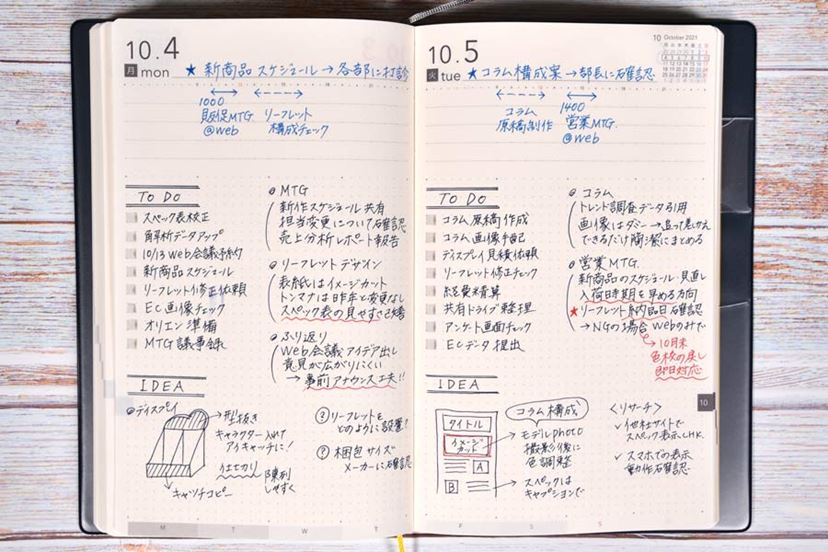 10.4
月 mon
★ 新商品スケジュール→各部に打診
1000
販促MTG
@web
リーフレット
構成チェック
TO DO
スペック表校正
解析データアップ
10/13 web会議予約
新商品スケジュール
リーフレット修正依頼
EC画像チェック
オリエン準備
MTG議事録
MTG
新作スケジュール共有
担当変更について確認
売上分析レポート報告
リーフレットデザイン
表紙はイメージカット
トンマナは昨年と変更なし
スペック表の見せ方
ふり返り
Web会議アイデア出し
意見が広がりにくい
→事前アナウンス工夫!!
IDEA
ディスプレイ
→型抜き
キャラクター入れて
アイキャッチに!
陳列
しやすく
キャッチコピー
? リーフレットを
どのように設置?
? 梱包サイズ
メーカーに確認
M T W T
10.5
火 tue
★ コラム構成案→部長に確認
10 October 2021
コラム
原稿制作
1400
営業MTG.
@web
TO DO
コラム原稿作成
コラム画像手配
ディスプレイ見積依頼
リーフレット修正チェック
経費精算
共有ドライブ整理
アンケート画面チェック
ECデータ提出
コラム
トレンド調査データ引用
画像はダミー→追って差しかえ
できるだけ簡潔にまとめる
営業MTG.
新商品のスケジュール見直し
入荷時期を早める方向
★リーフレット納品日確認
→NGの場合Webのみで
10月末
色校の戻し
即日対応
IDEA
タイトル
イメージ
カット
A
B
コラム構成
モデルphoto
撮影後に
色調整
スペックは
キャプションで
<リサーチ>
✓他社サイトで
スペック表示CHK.
✓スマホでの表示
動作確認
10
F S S